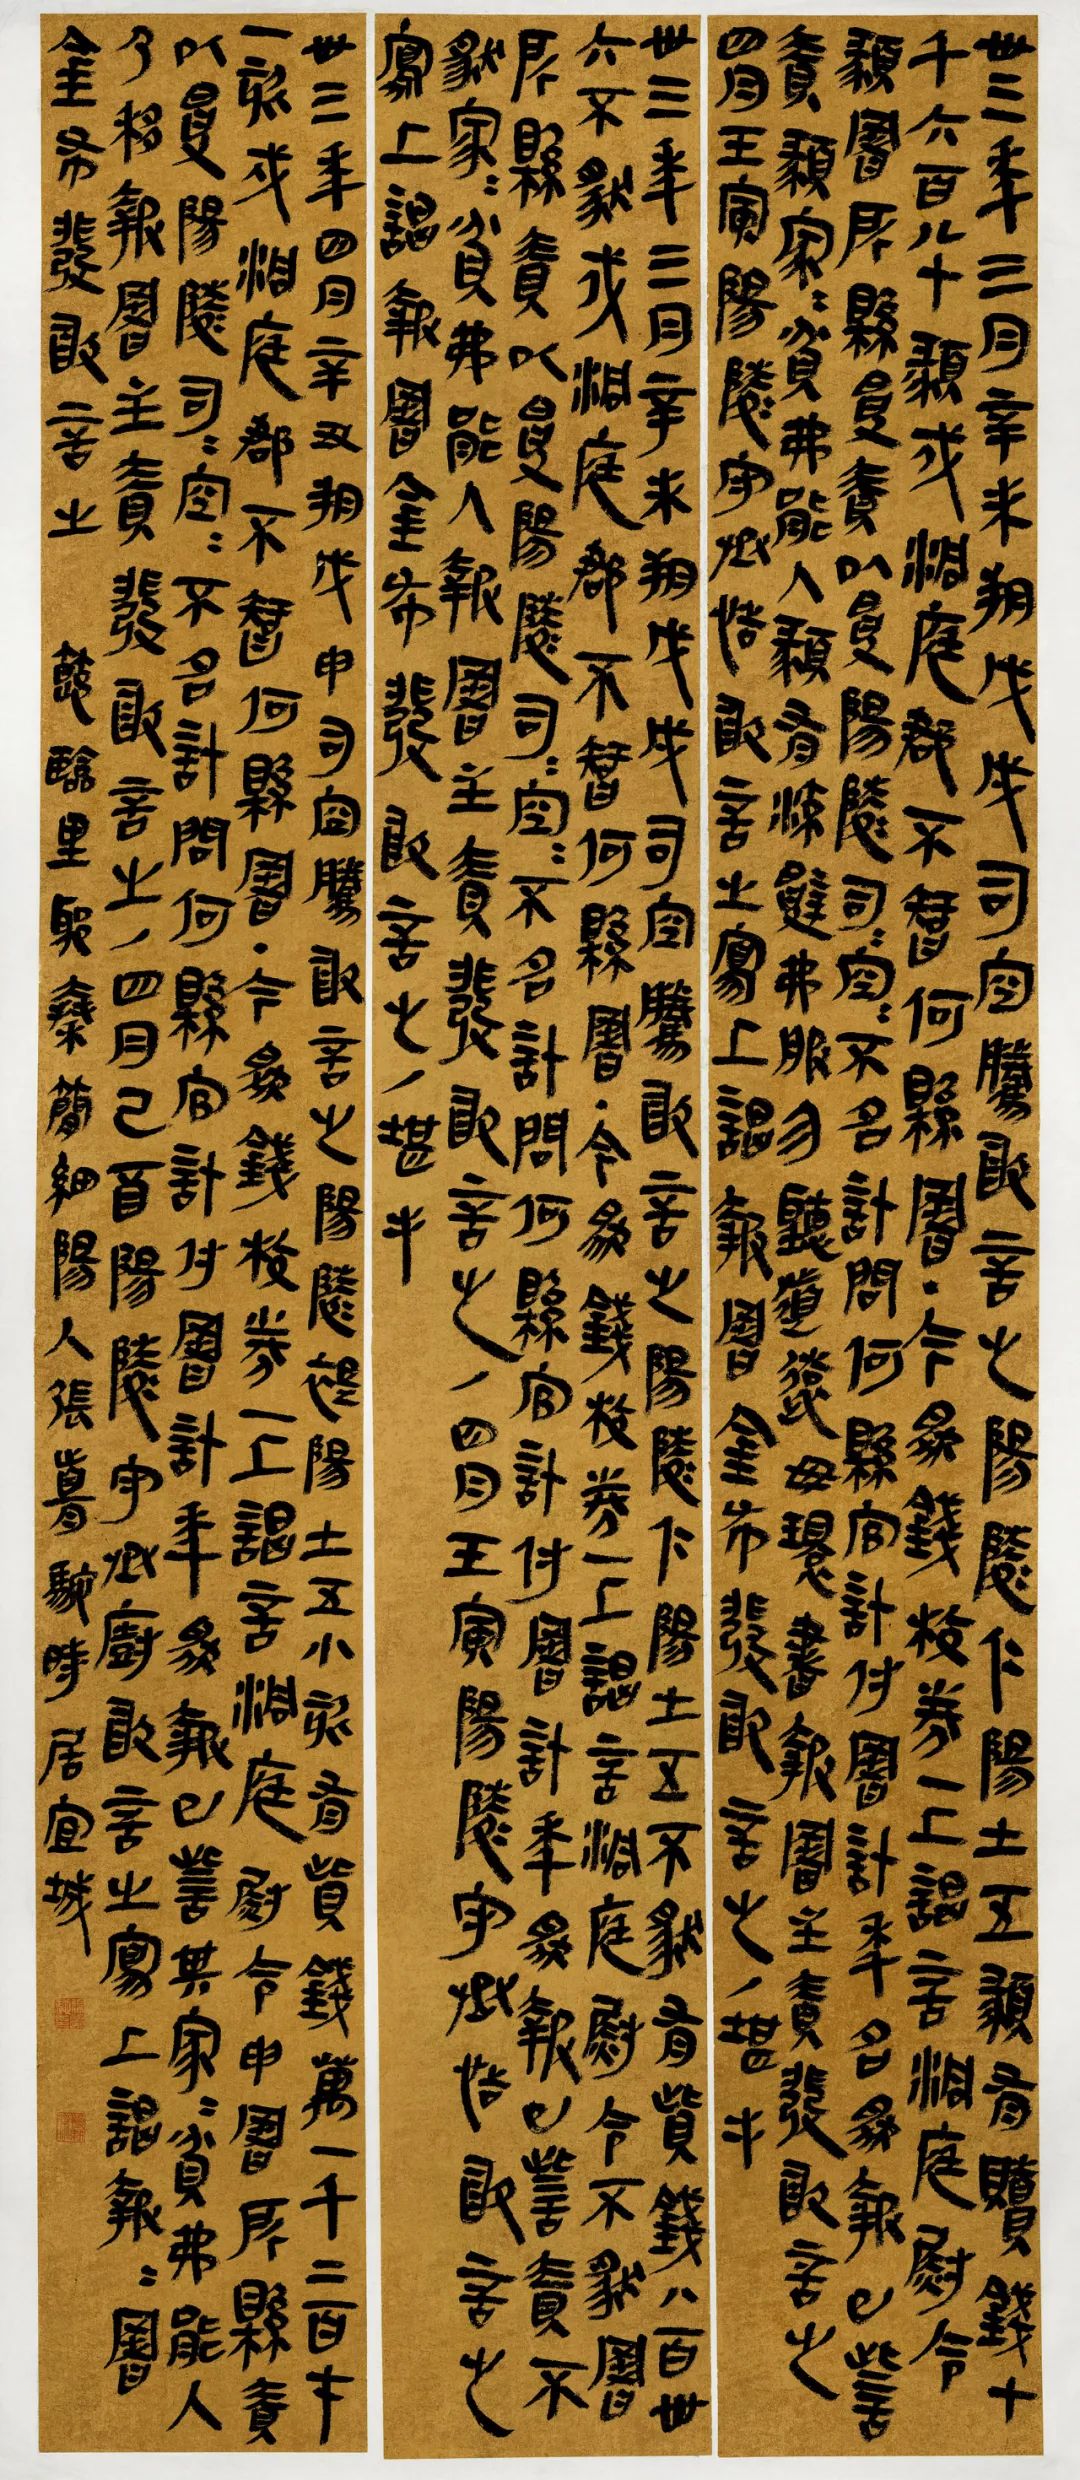 卅三年三月辛未朔戊戌司空騰敢言之陽陵仁陽士五頯有贖錢七
千六百八十頯戍洞庭郡不智何縣署·今為錢校券一上謁言洞庭尉令
頯署所縣受責以受陽陵司=空=不名計問何縣官計付署計年名為報已訾
責頯家=貧弗能入頯有流辟弗服勿聽道遠毋環書報署主責發敢言之
四月壬寅陽陵守丞恬敢言之寫上謁報署金布發敢言之/堪手
卅三年三月辛未朔戊戌司空騰敢言之陽陵仁陽士五不豤有貲錢八百卅
六不豤戍洞庭郡不智何縣署·今為錢校券一上謁言洞庭尉令不豤署
所縣責以受陽陵司=空=不名計問何縣官計付署計年為報已訾責不
豤家=貧弗能入報署主責發敢言之/四月壬寅陽陵守丞恬敢言之
寫上謁報署金布發敢言之/堪手
卅三年四月辛丑朔戊申司空騰敢言之陽陵褆陽士五小欬有貲錢萬一千二百七十
一欬戍洞庭郡不智何縣署·今為錢校券一上謁言洞庭尉令申署所縣責
以受陽陵司=空=不名計問何縣官計付署計年為報已訾其家=貧弗能入
乃移報署主責發敢言之/四月己酉陽陵守丞廚敢言之寫上謁報=署
金布發敢言之 節臨里耶秦簡細陽人張時居宜城